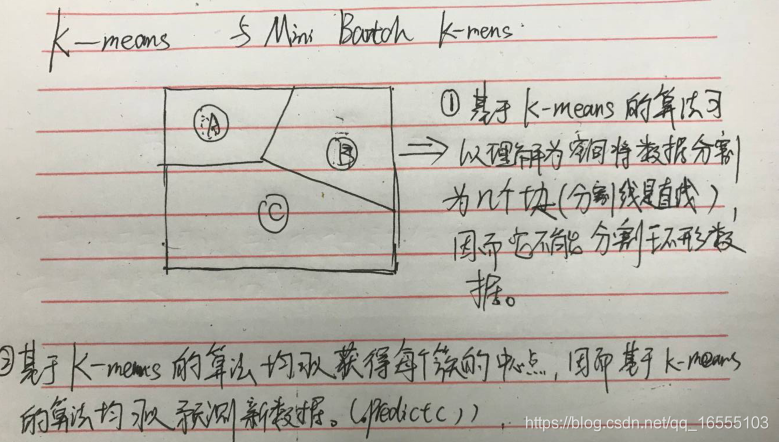 K-means 与 Mini Bartch K-mens
A
B
C
① 基于 K-means 的算法可
以理解为空间将数据分割
为几个块(分割线是直线),
因而它不能分割环形数
据。
②基于 K-means 的算法均可以获得每个簇的中心点,因而基于 K-means
的算法均可以预测新数据。(predict())
https://blog.csdn.net/qq_16555103